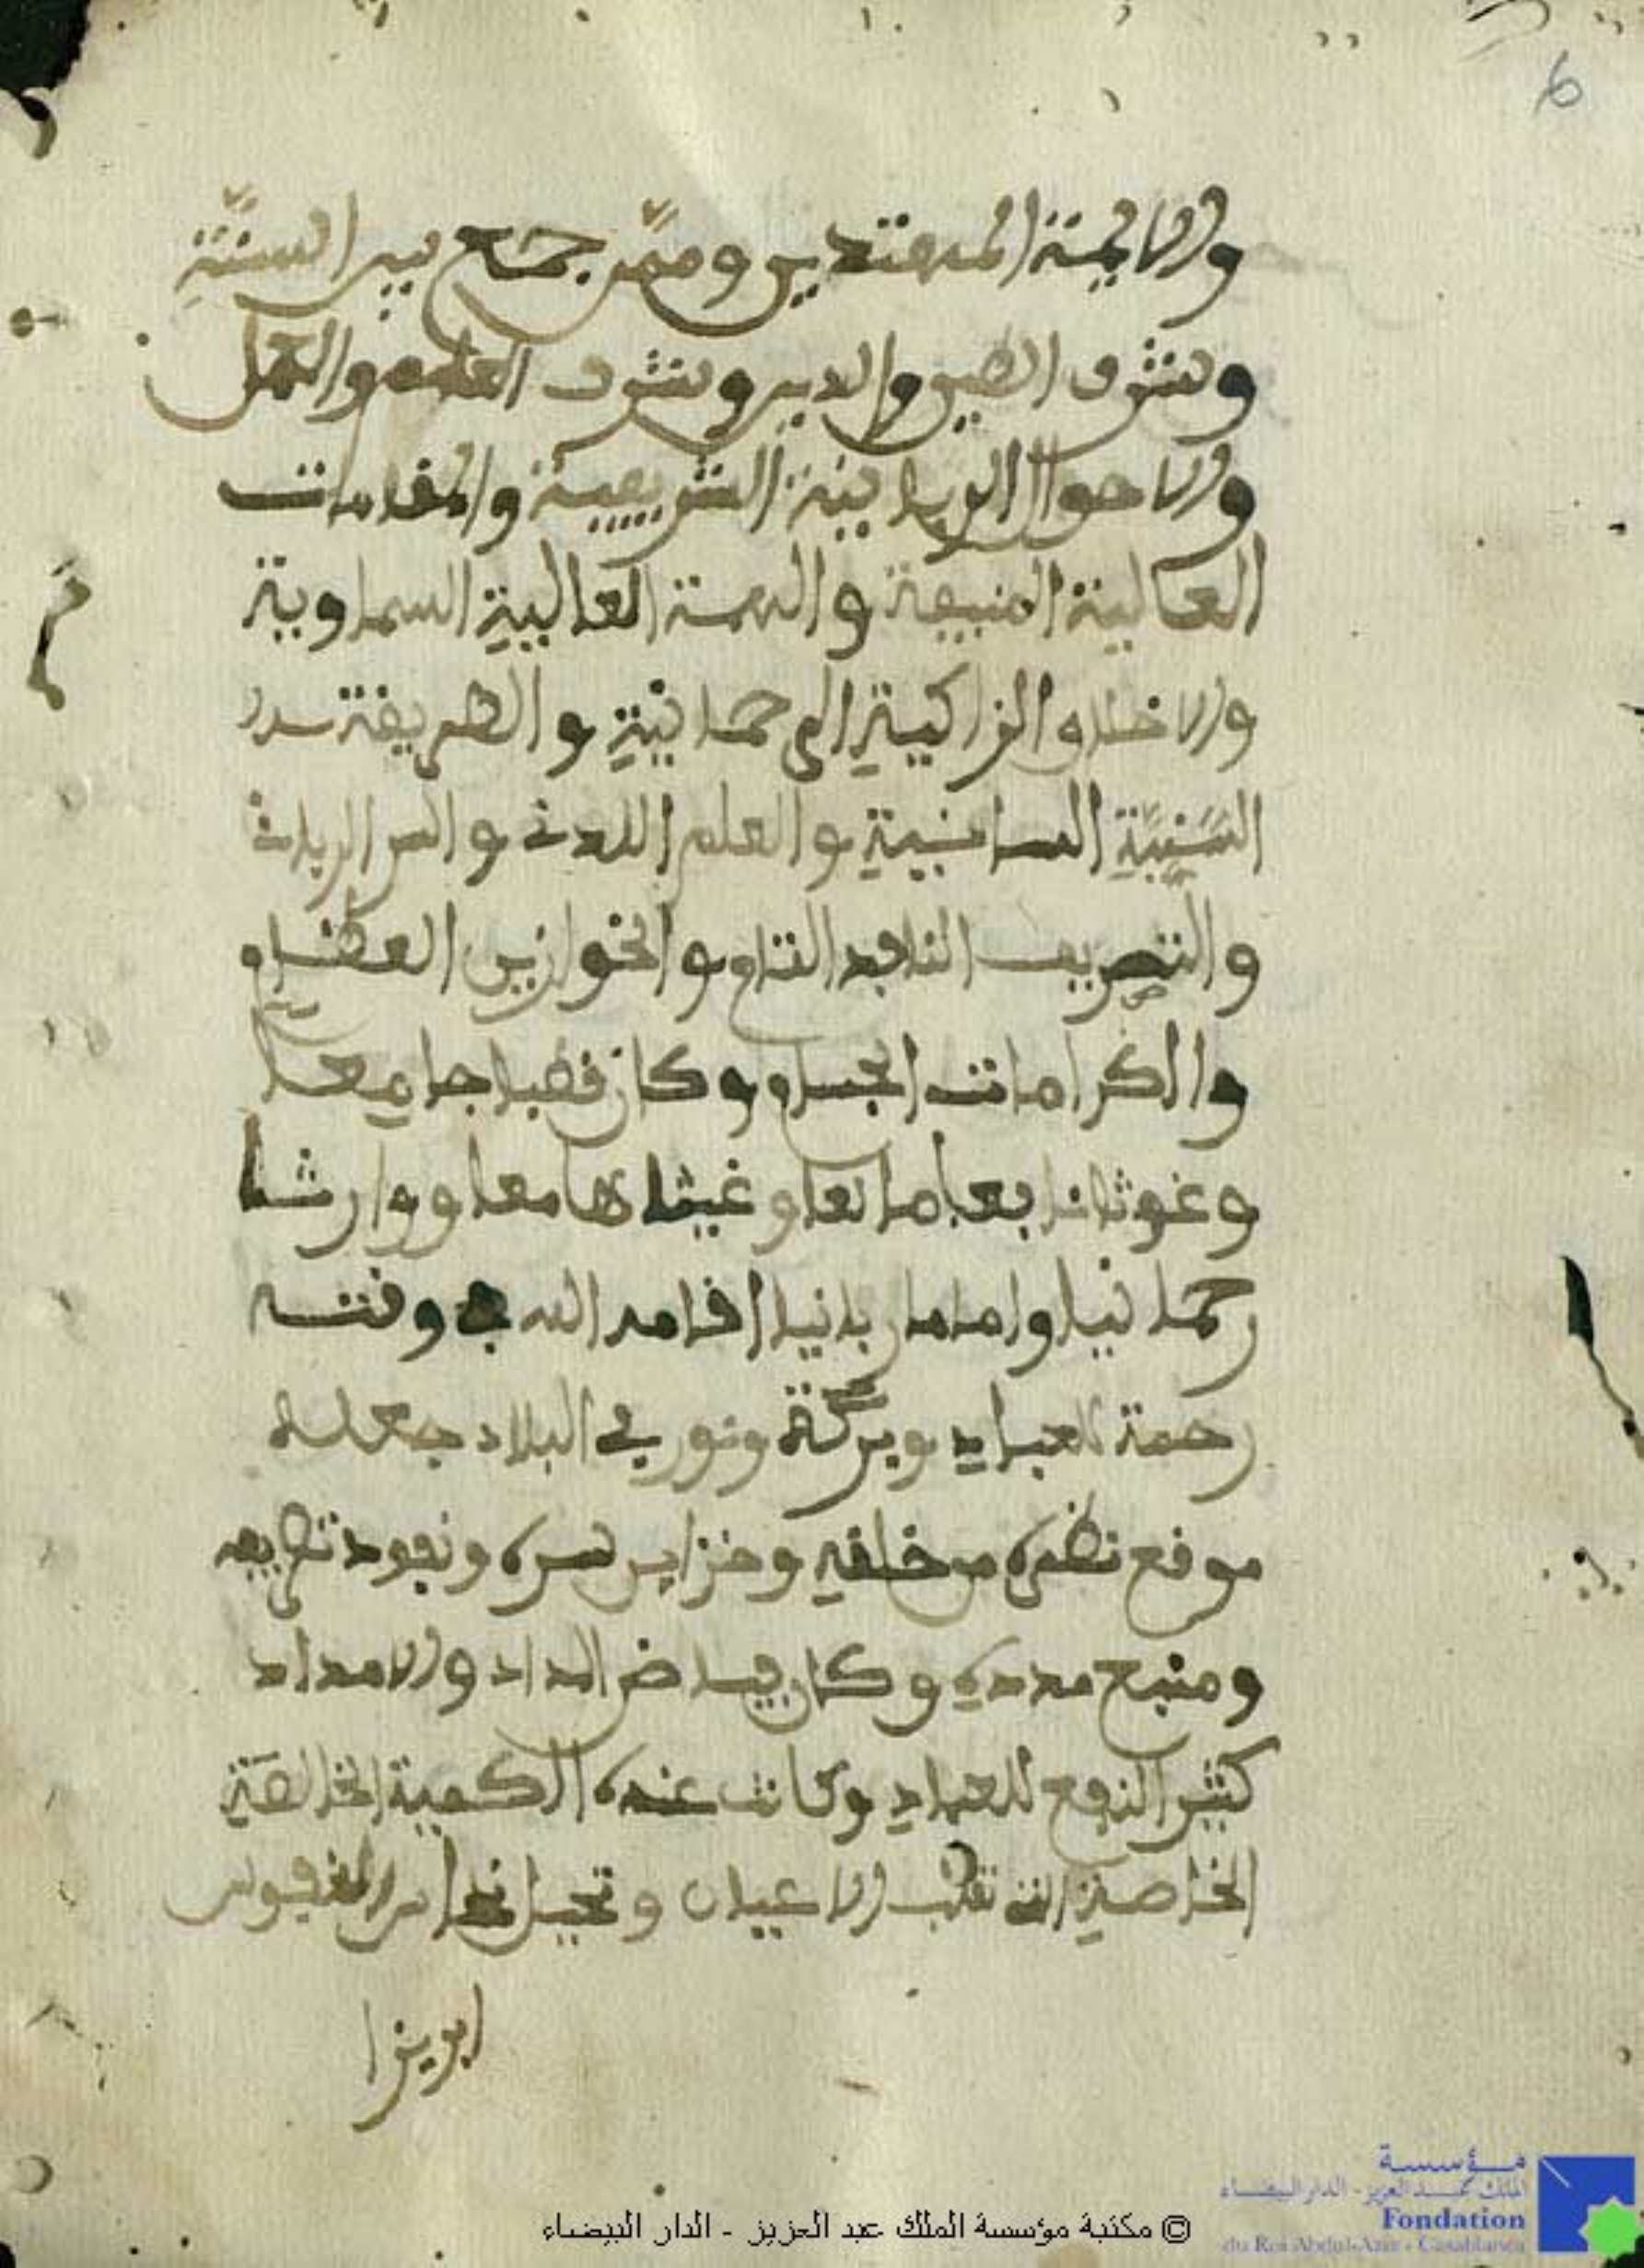 6
والايمة المهتدين وممن جمع بين السنة
وشرف الطين والدين وشرف العلم والعمل
والاحوال الربانية الشريفة والمقامات
العالية المنيفة والهمة العالية السماوية
والاخلاق الزاكية الرحمانية والطريقة
السنية السانية والعلم اللدني والسر الرباني
والتصريف النافذ التام والخوارق العظام
والكرامات الجسام وكان قطبا جامعا
وغوثا نافعا مانعا وغيثا هامعا ووارثا
رحمانيا واماما ربانيا اقامه الله في وقته
رحمة للعباد وبركة ونور في البلاد جعله
موقع نظره من خلقه وخزاين سره ونفوذ تصريفه
ومنبع مدده وكان فياض المداد والامداد
كثير النفع للعباد وكانت عنده الكمية الخالصة
الخاصية التي تقلب الاعيان وتحيل نحاس النفوس
ابريزا
© مكتبة مؤسسة الملك عبد العزيز - الدار البيضاء
مؤسسة
الملك عبد العزيز - الدار البيضاء
Fondation
du Roi Abdul-Aziz - Casablanca